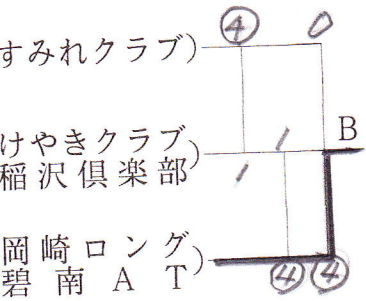 ④ 0
すみれクラブ)
1 B
けやきクラブ)
稲沢倶楽部
1
岡崎ロング)
碧南AT
④ ④